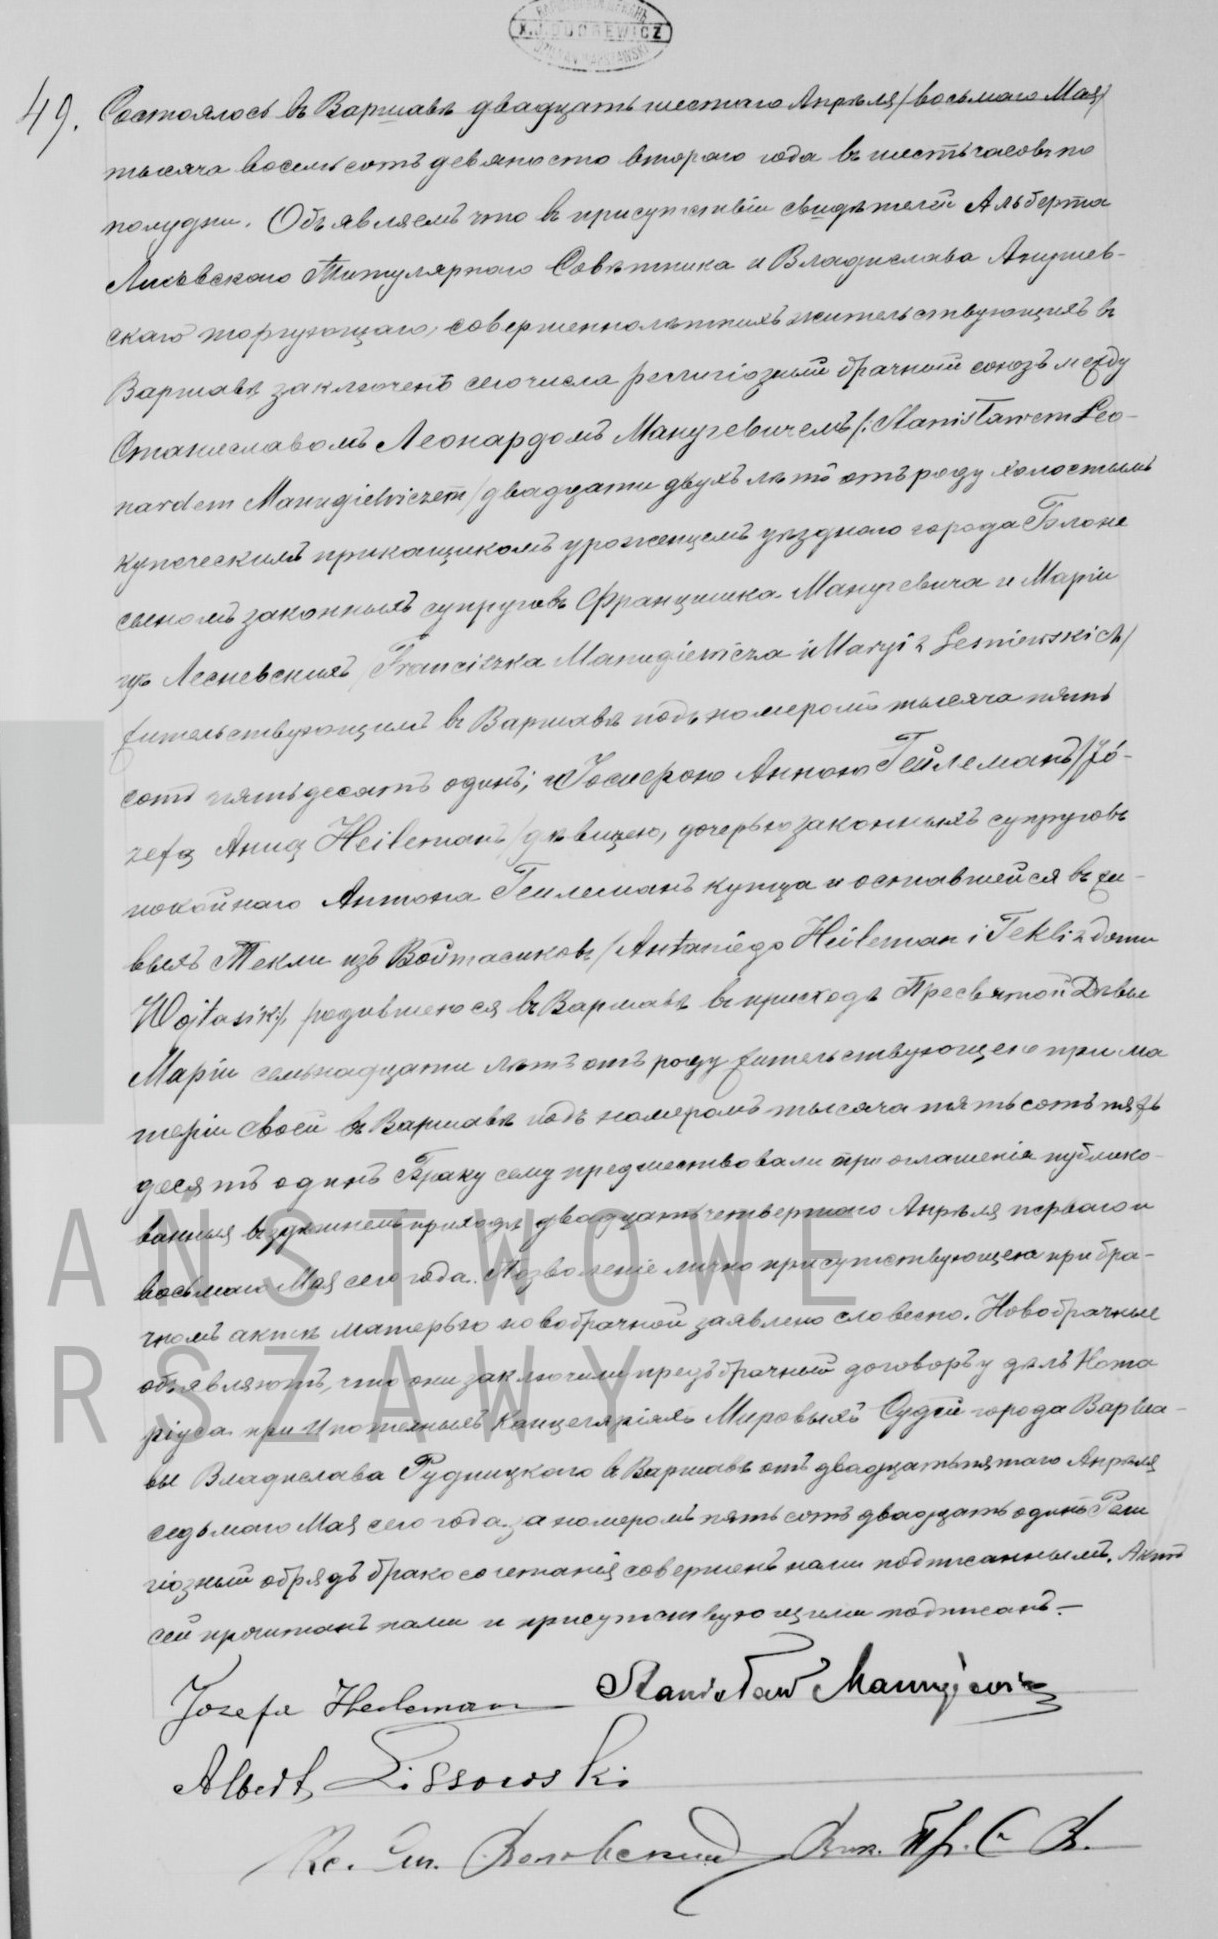 X. J. DUDREWICZ
49.
Состоялось въ Варшавѣ двадцать шестаго Апрѣля /восьмаго Мая/
тысяча восемьсотъ девяносто втораго года въ шесть часовъ по
полудни. Объявляемъ что въ присутствіи свидѣтелей Альберта
Лисовскаго Титулярнаго Совѣтника и Владислава
скаго торгующаго, совершеннолѣтнихъ жительствующихъ въ
Варшавѣ заключенъ сего числа религіозный брачный союзъ между
Станиславомъ Леонардомъ Манугевичемъ /:Stanisławem Leo-
nardem Manugiewiczem/ двадцати двухъ лѣтъ отъ роду холостымъ
купеческимъ прикащикомъ уроженцемъ уѣзднаго города Блоне
сыномъ законныхъ супруговъ Францишка Манугевича и Маріи
изъ Лесневскихъ /Franciszka Manugiewicza i Maryi z Lesniewskich/
жительствующимъ въ Варшавѣ подъ номеромъ тысяча пять
сотъ пятьдесятъ одинъ; и Іосифою Анною Гейлеманъ /Jó-
zefą Anną Heileman/ дѣвицею, дочерью законныхъ супруговъ
покойнаго Антона Гейлеманъ купца и оставшейся въ жи-
выхъ Текли изъ Войтасиковъ /Antoniego Heileman i Tekli z domu
Wojtasik/, родившеюся въ Варшавѣ въ приходѣ Пресвятой Дѣвы
Маріи семьнадцати лѣтъ отъ роду жительствующею при ма
тери своей въ Варшавѣ подъ номеромъ тысяча пятьсотъ пять
десятъ одинъ Браку сему предшествовали три оглашенія публико-
ванныя въ здѣшнемъ приходѣ двадцать четвертаго Апрѣля перваго и
восьмаго Мая сего года. Позволеніе лично присутствующею при бра-
чномъ актѣ матерью новобрачной заявлено словесно. Новобрачные
объявляютъ, что они заключили предъбрачный договоръ у дѣлъ Нота
ріуса при Ипотечныхъ Канцеляріяхъ Мировыхъ Судей города Варша-
вы Владислава Рудницкаго въ Варшавѣ отъ двадцать пятаго Апрѣля
седьмаго Мая сего года за номеромъ пятьсотъ двадцать одинъ Рели
гіозный обрядъ бракосочетанія совершенъ нами подписаннымъ. Актъ
сей прочитанъ нами и присутствующими подписанъ.—
Józefa Heileman Stanisław Manugiewicz
Albert Lissowski
Кс. Вик. Пр. С. В.
AŃSTWOWE
RSZAWY